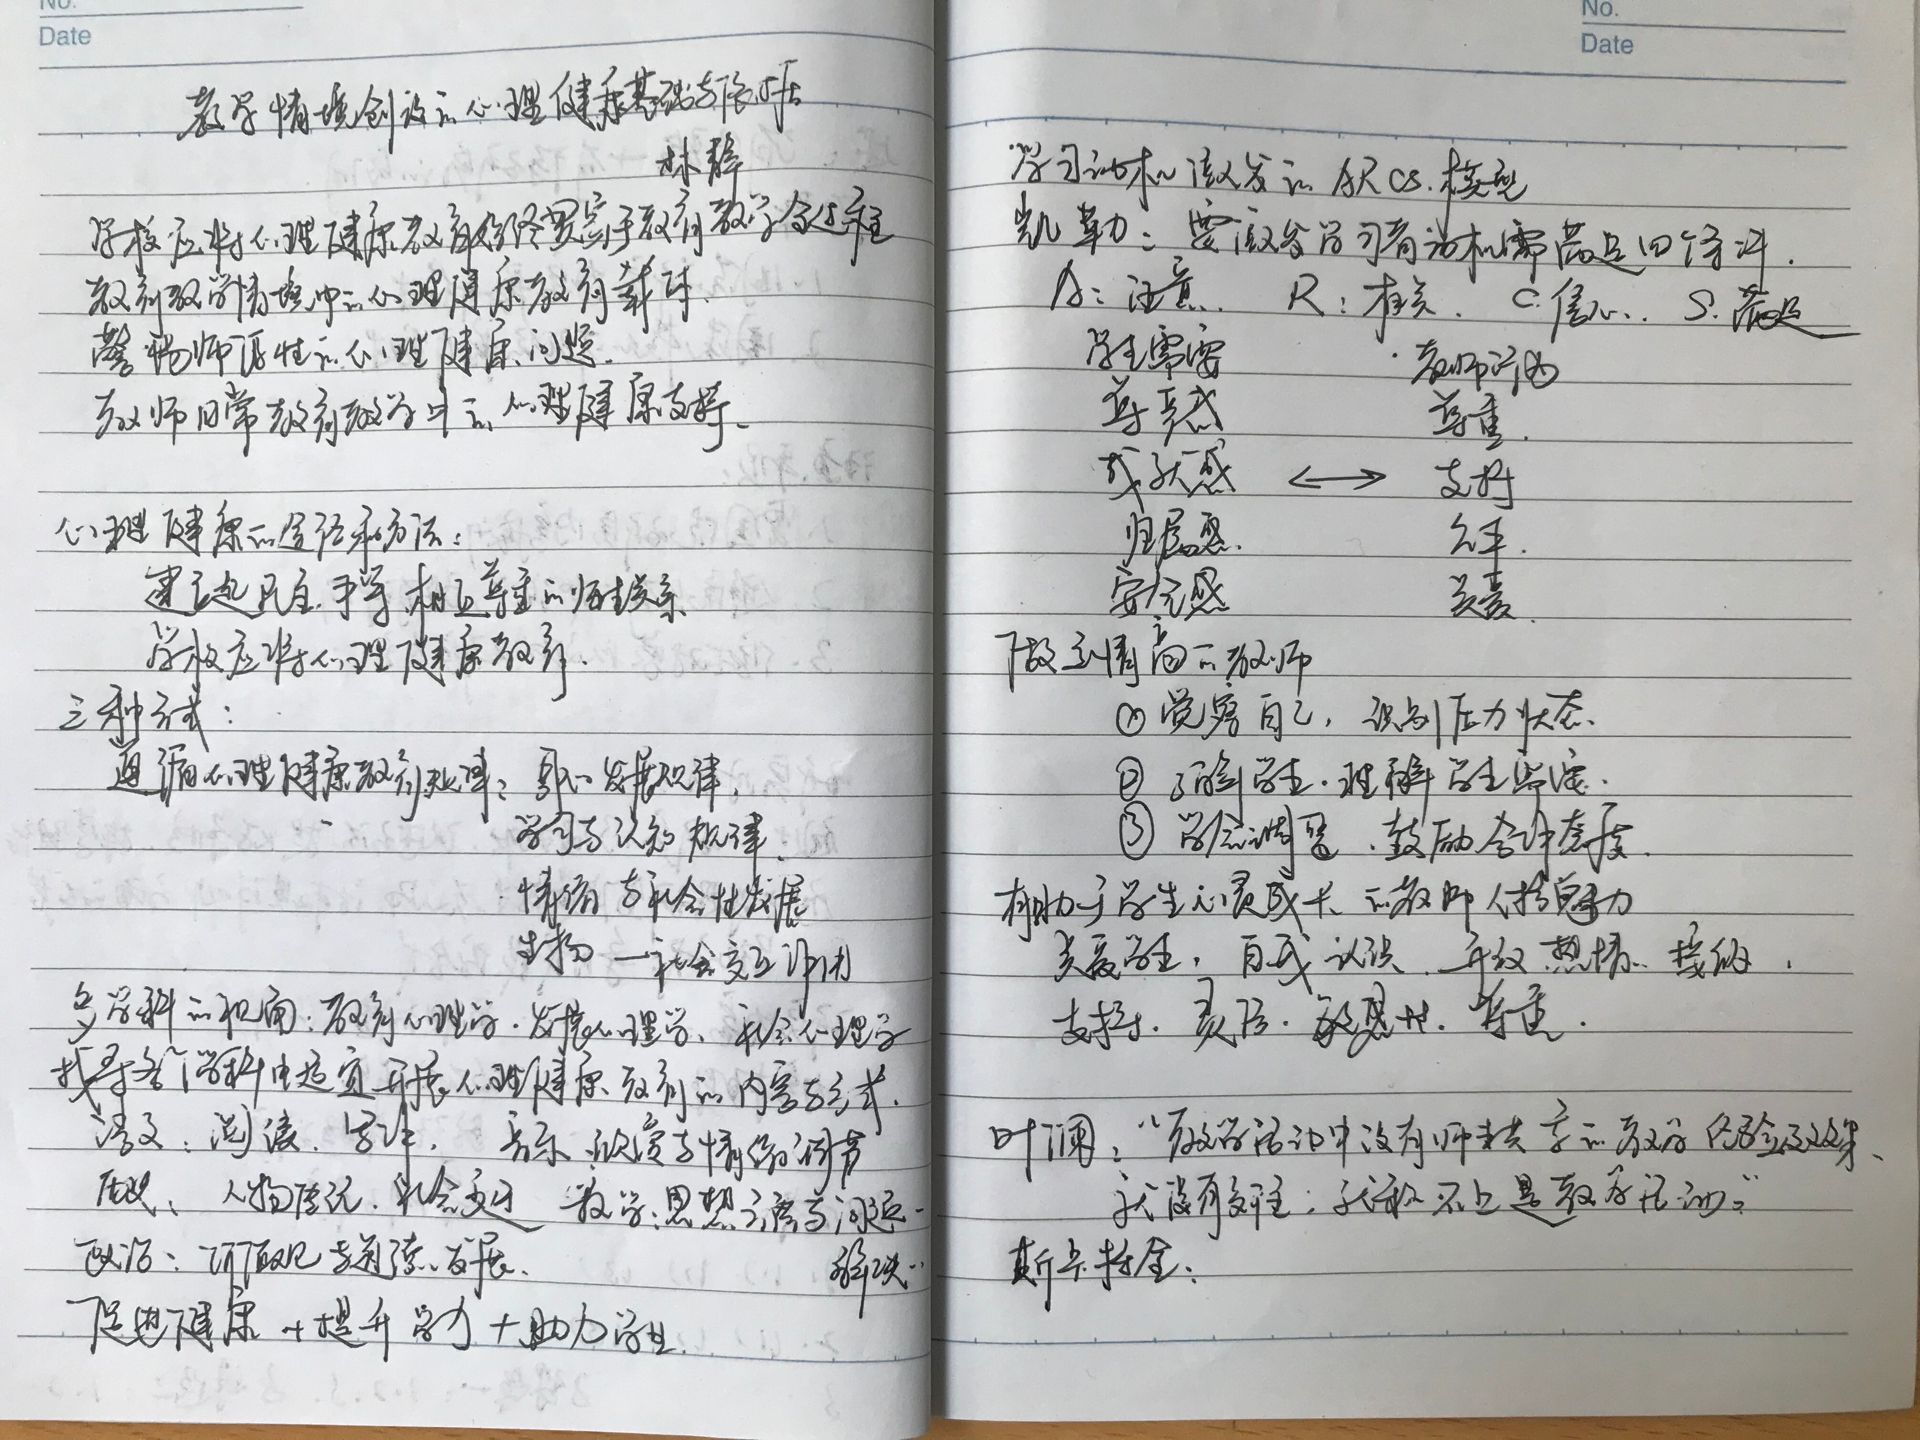 No.
Date
教学情境创设的心理健康基础与依据
林静
学校应将心理健康教育始终贯穿于教育教学全过程
教育教学情境中的心理健康教育载体.
警惕师源性的心理健康问题.
教师日常教育教学中的心理健康支持.
心理健康的途径和方法:
建立起民主.平等.相互尊重的师生关系.
学校应将心理健康教育.
三种方式:
遵循心理健康教育规律: 身心发展规律.
学习与认知规律.
情绪与社会性发展
生物—社会交互作用
多学科的视角: 教育心理学.发展心理学、社会心理学
找寻各门学科中适宜开展心理健康教育的内容与方式.
语文: 阅读.写作. 音乐:欣赏与情绪调节
历史: 人物传记.社会变迁 数学:思想方法与问题
解决..
政治: 价值观与道德发展.
促进健康+提升学力+助力学业.
No.
Date
学习动机激发的ARCS.模型
凯勒: 要激发学习者动机需满足四个条件.
A: 注意. R: 相关. C.信心. S.满足
学生需要 教师行为
尊严感 尊重.
成就感 ⟷ 支持
归属感. 公平.
安全感 关爱.
做高情商的教师
① 觉察自己, 识别压力状态.
② 了解学生.理解学生背景.
③ 学会调整.鼓励合作态度.
有助于学生心灵成长的教师人格魅力
关爱学生, 自我认识. 热情. 接纳.
支持. 灵活. 敏感性. 尊重.
叶澜: “教学活动中没有师生共享的教学经验及效果、
就没有交往; 就称不上是教学活动.”
斯卡特金: